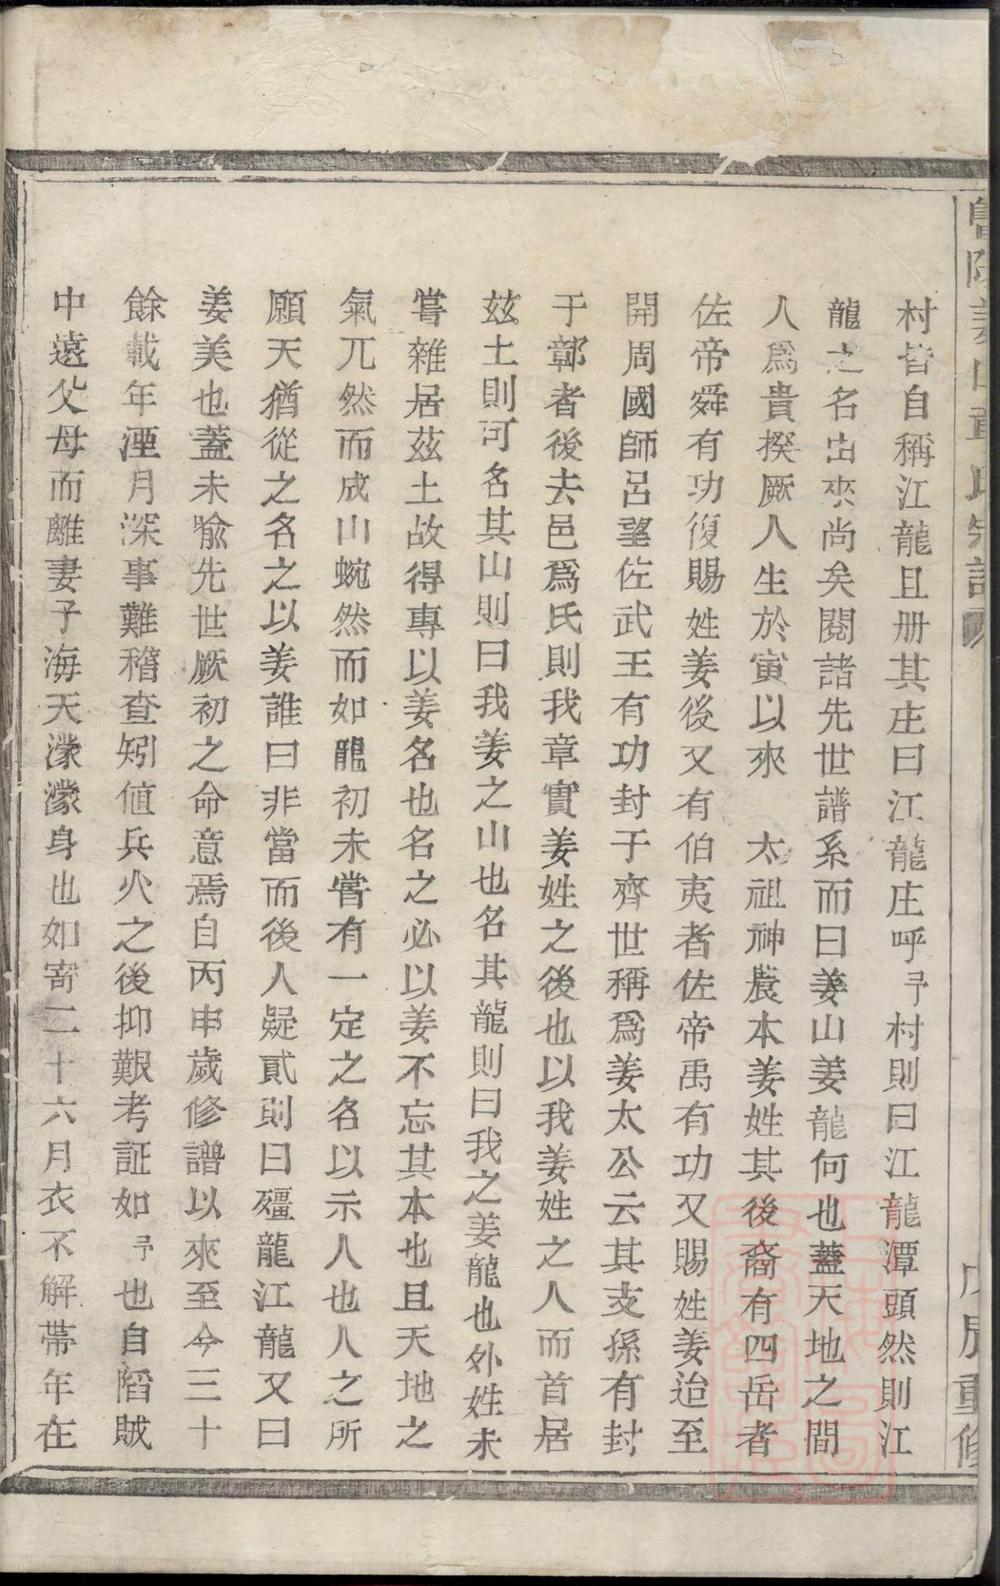 暨陽姜山章氏宗譜
戊辰重修
村皆自稱江龍且册其庄曰江龍庄呼予村則曰江龍潭頭然則江
龍之名出來尚矣閱諸先世譜系而曰姜山姜龍何也蓋天地之間
人爲貴揆厥人生於寅以來　太祖神農本姜姓其後裔有四岳者
佐帝舜有功復賜姓姜後又有伯夷者佐帝禹有功又賜姓姜迨至
開周國師呂望佐武王有功封于齊世稱爲姜太公云其支孫有封
于鄣者後去邑爲氏則我章實姜姓之後也以我姜姓之人而首居
玆土則可名其山則曰我姜之山也名其龍則曰我之姜龍也外姓未
嘗雜居茲土故得專以姜名也名之必以姜不忘其本也且天地之
氣兀然而成山蜿然而如龍初未嘗有一定之名以示人也人之所
願天猶從之名之以姜誰曰非當而後人疑貳則曰殭龍江龍又曰
姜美也蓋未喻先世厥初之命意焉自丙申歲修譜以來至今三十
餘載年湮月深事難稽查矧值兵火之後抑艱考証如予也自陷賊
中遠父母而離妻子海天濛濛身也如寄二十六月衣不解帶年在